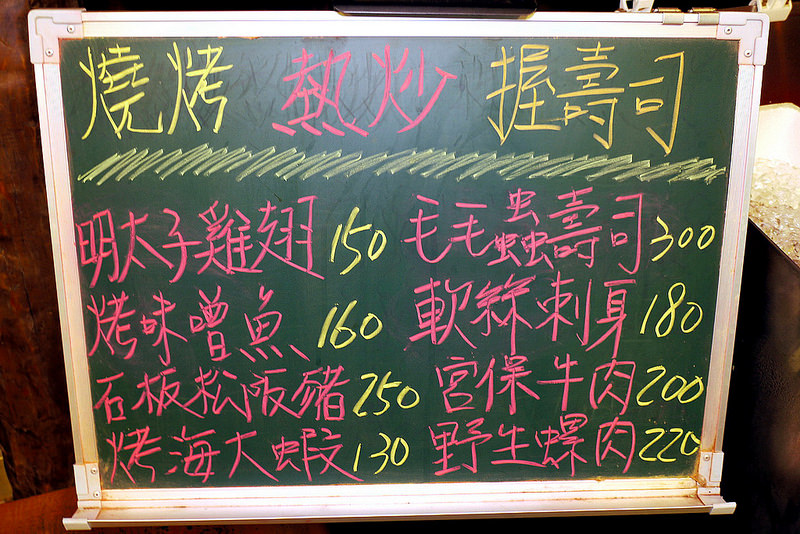 燒烤 熱炒 握壽司
明太子雞翅150 毛毛蟲壽司300
烤味噌魚160 軟絲刺身180
石板松阪豬250 宮保牛肉200
烤海大蝦130 野生螺肉220